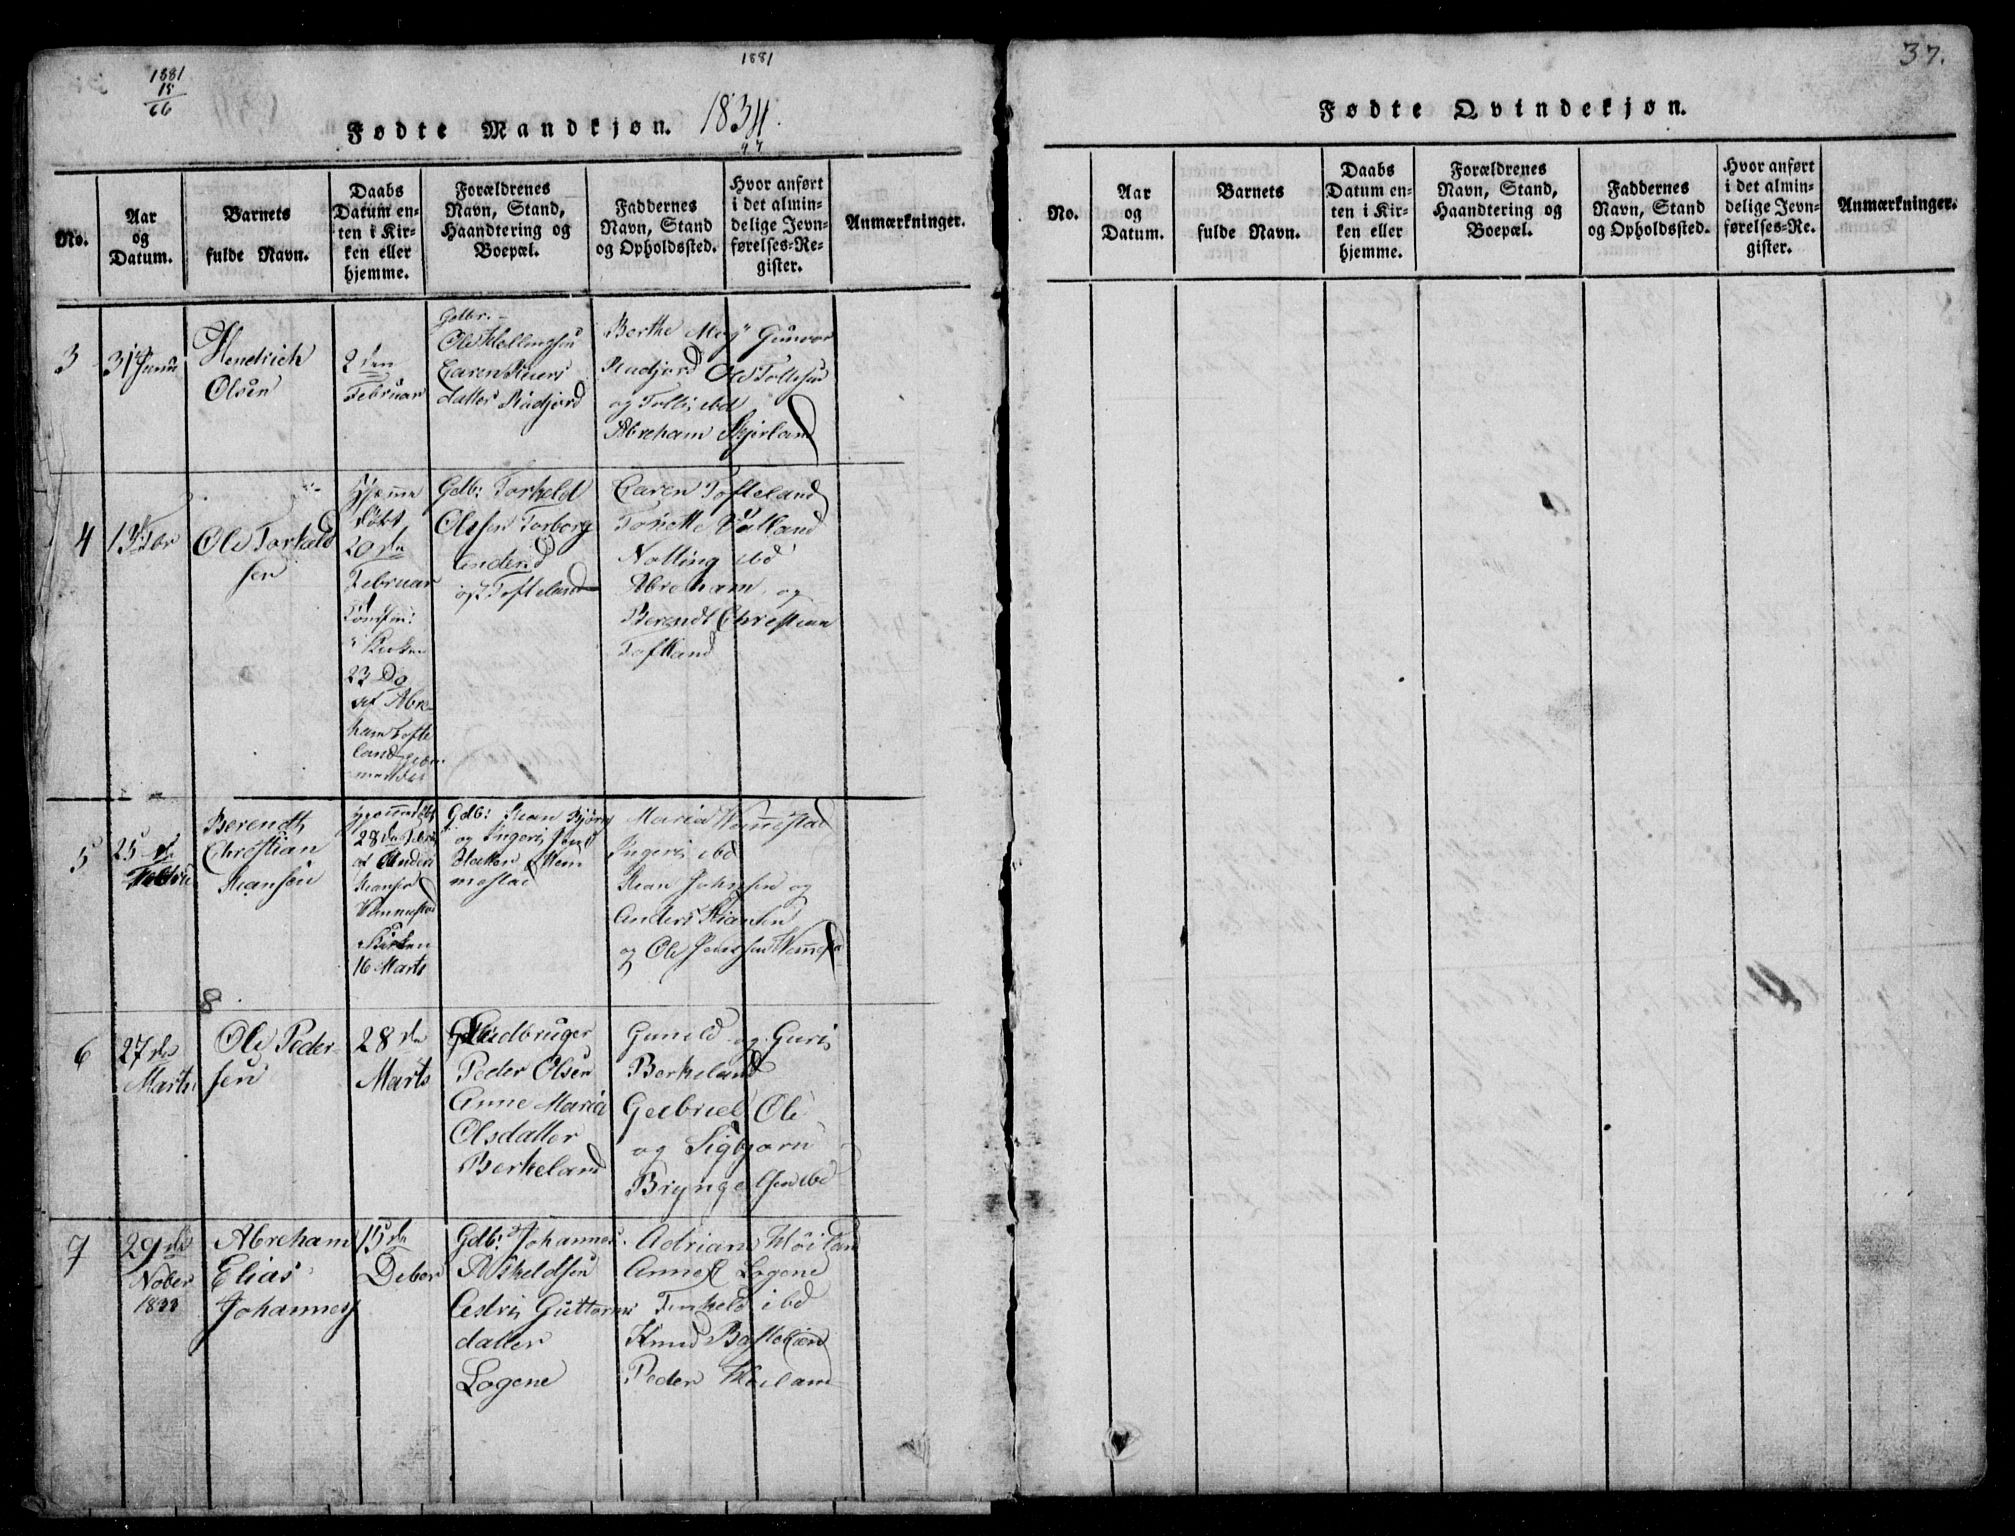 1881
15
66
1881
Fødte Mandkjøn. 1834.
47
No.
Aar
og
Datum.
Barnets
fulde Navn.
Daabs
Datum en-
ten i Kir-
ken eller
hjemme.
Forældrenes
Navn, Stand,
Haandtering og
Boepæl.
Faddernes
Navn, Stand
og Opholdssted.
Hvor anført
i det almin-
delige Jevn-
førelses-Re-
gister.
Anmærkninger.
3
31
Hendrich
Olsen
2den
Februar
Gdbr.
Ole
Caren
datter Rudjord
Berthe Gunvor
Rudjord Ole Tollefsen
og Tolles ibd
Abreham Skjerland
4
13 Febr
Ole Torkeld
sen
Hjemme
døbt
20 de
Februar
i Kirken
23 Do
af Abre-
ham Tofte
land
Gdb: Torkeld
Olssen Torborg
Tofteland
Caren Tofteland
Tonette
Notting ibd
Abreham og
Berendt Christian
Tofteland
5
25 de
Berendt
Christian
Reansen
28 de
af Anders
Reansen
Vemmestad
Kirken
16 Marts
Gdb: Rean
og Ingeris
datter Vem
mestad
Maria Vemmestad
Ingeris ibd
Rean Johnsen og
Anders Reansen
og Ole Vemestad
8
6
27 de
Marts
Ole Peder
sen
28 de
Marts
Gaardbruger
Peder Olsen
Anne Maria
Olsdatter
Berkeland
Guneld og Guris
Berkeland
Gabriel Ole
og Sigbjørn
Bryngelsen ibd
7
29 de
Nober
1833
Abreham
Elias
Johannes
15 de
Deber
Gdb: Johannes
Askeldsen
Guttorms
datter
Logene
Adrian Møiland
Anne Logene
Terkeld ibd
Knud
Peder Møiland
37.
Fødte Qvindekjøn.
No.
Aar
og
Datum.
Barnets
fulde Navn.
Daabs
Datum en-
ten i Kir-
ken eller
hjemme.
Forældrenes
Navn, Stand,
Haandtering og
Boepæl.
Faddernes
Navn, Stand
og Opholdssted.
Hvor anført
i det almin-
delige Jevn-
førelses-Re-
gister.
Anmærkninger.